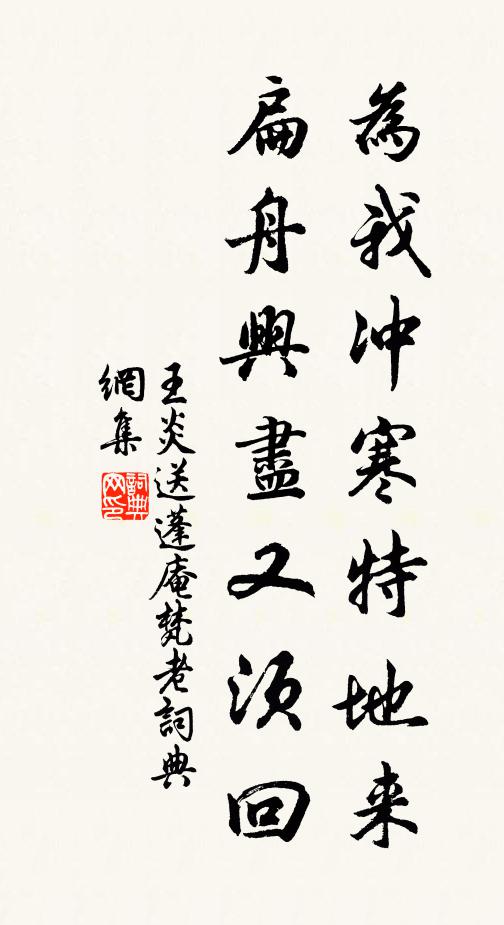 為我冲寒特地来
扁舟興盡又須回
王炎送蓬庵梵老詞典
網集
詞典
网印